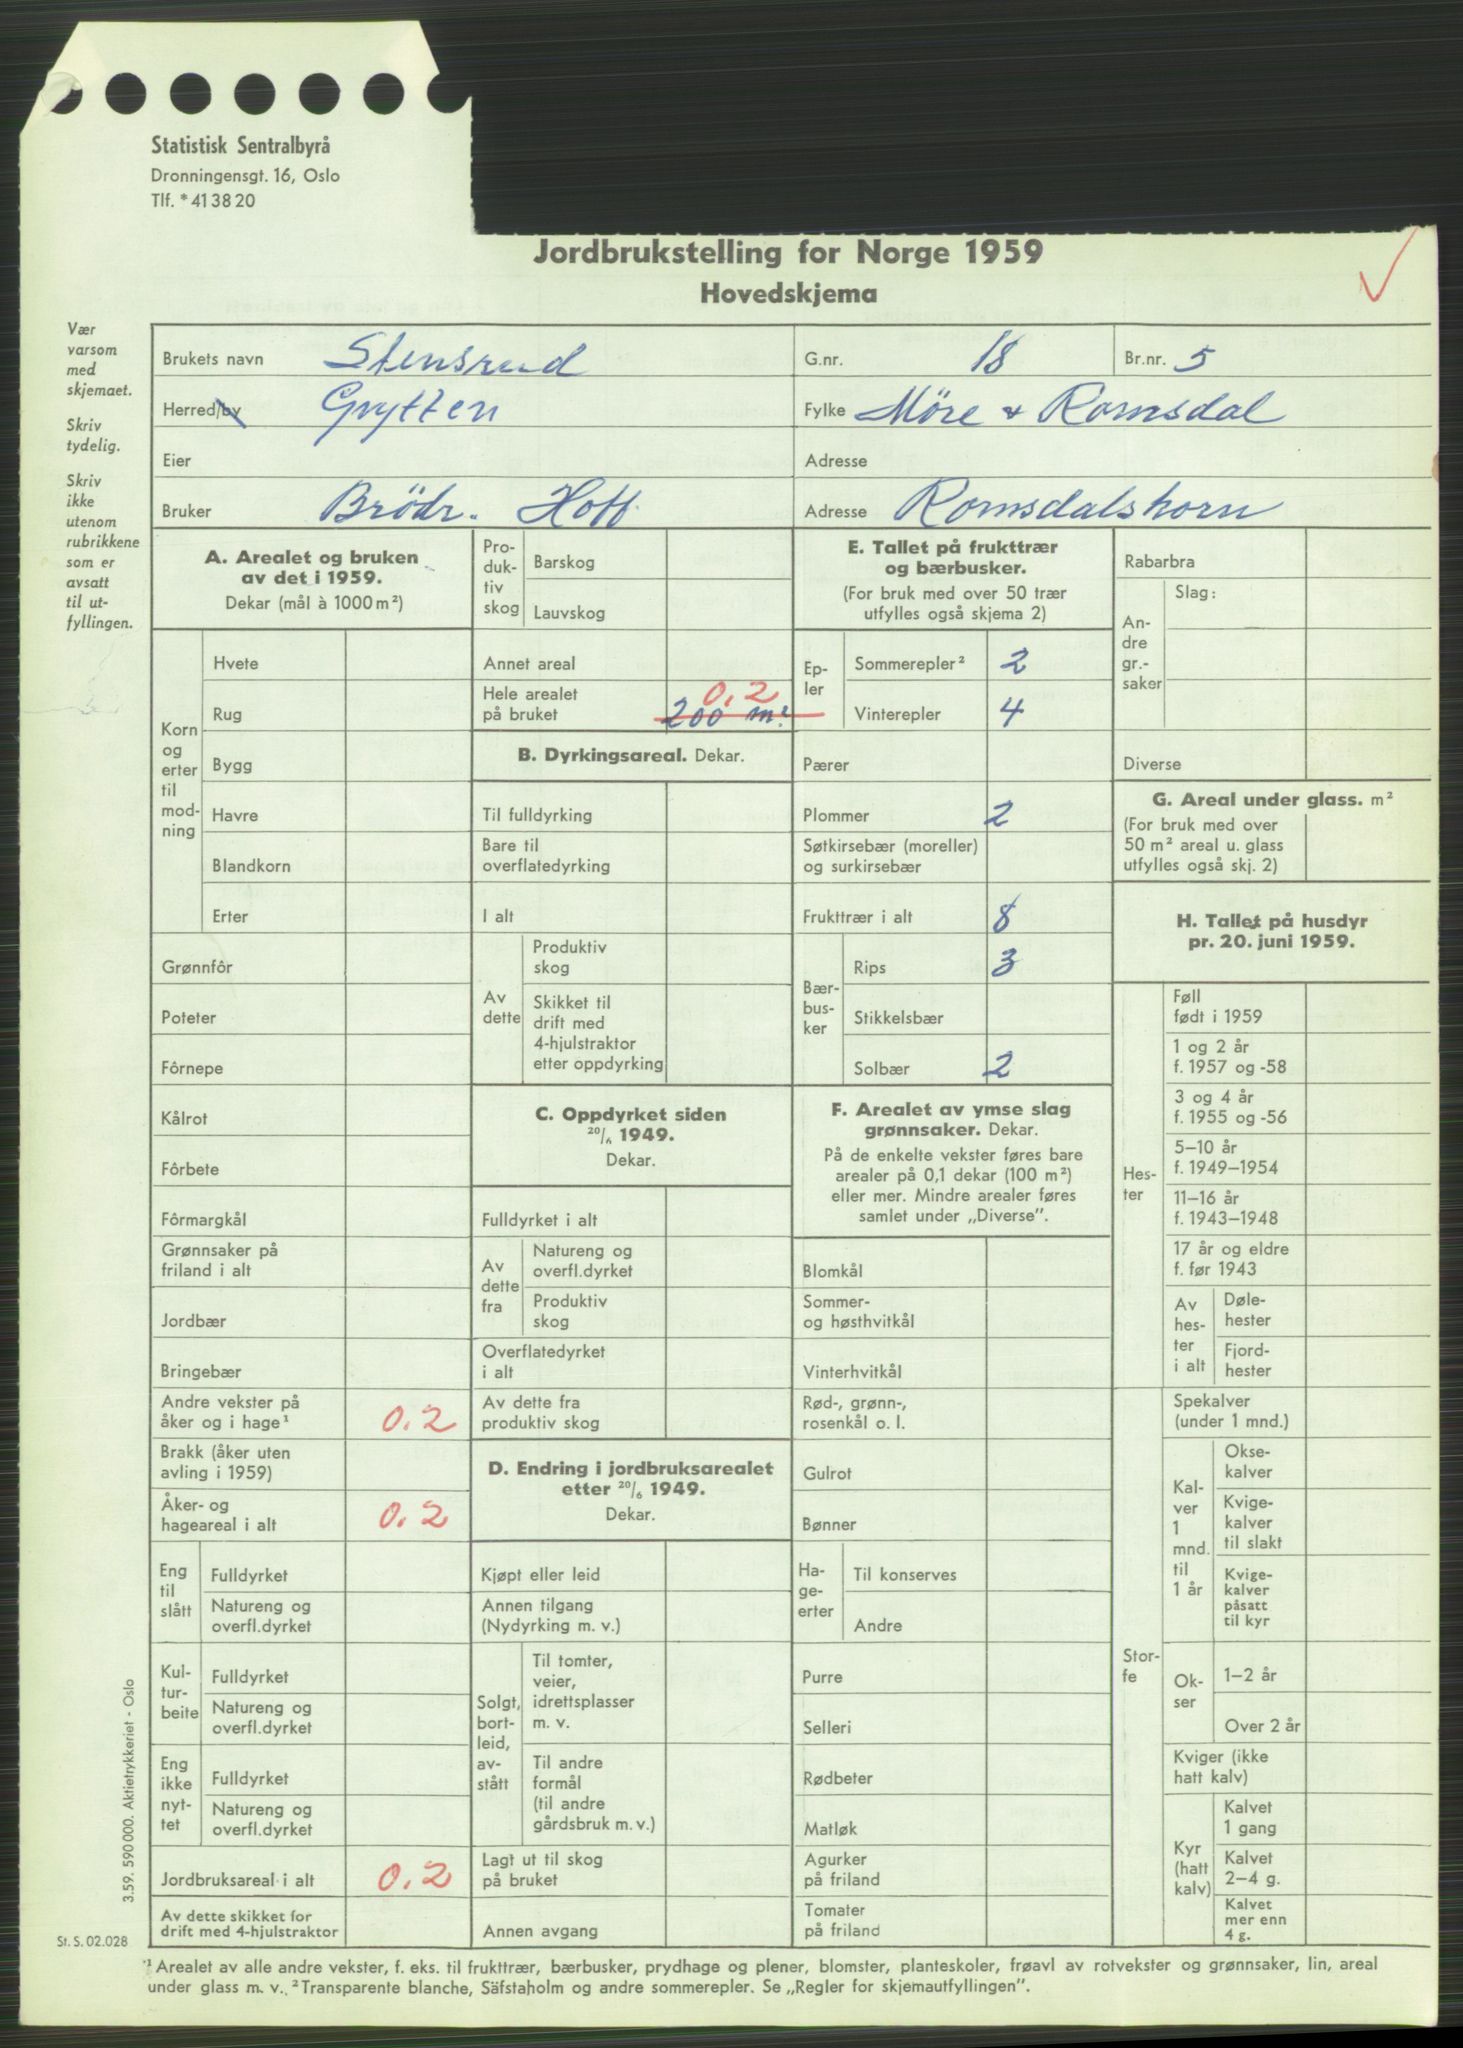 Statistisk Sentralbyrå
Dronningensgt. 16, Oslo
Tlf. *41 38 20
Jordbrukstelling for Norge 1959
Hovedskjema
Vær
varsom
med
skjemaet.
Skriv
tydelig.
Skriv
ikke
utenom
rubrikkene
som er
avsatt
til ut-
fyllingen.
Brukets navn Stensrud G.nr. 18 Br.nr. 5
Herred/by Grytten Fylke Möre & Romsdal
Eier Adresse
Bruker Brödr. Hoff Adresse Romsdalshorn
A. Arealet og bruken
av det i 1959.
Dekar (mål à 1000 m²)
Korn
og
erter
til
mod-
ning
Hvete
Rug
Bygg
Havre
Blandkorn
Erter
Grønnfôr
Poteter
Fôrnepe
Kålrot
Fôrbete
Fôrmargkål
Grønnsaker på
friland i alt
Jordbær
Bringebær
Andre vekster på
åker og i hage¹ 0.2
Brakk (åker uten
avling i 1959)
Åker- og
hageareal i alt 0.2
Eng
til
slått
Fulldyrket
Natureng og
overfl.dyrket
Kul-
tur-
beite
Fulldyrket
Natureng og
overfl.dyrket
Eng
ikke
nyt-
tet
Fulldyrket
Natureng og
overfl.dyrket
Jordbruksareal i alt 0.2
Av dette skikket for
drift med 4-hjulstraktor
Pro-
duk-
tiv
skog
Barskog
Lauvskog
Annet areal
Hele arealet
på bruket 0.2
200 m²
B. Dyrkingsareal. Dekar.
Til fulldyrking
Bare til
overflatedyrking
I alt
Av
dette
Produktiv
skog
Skikket til
drift med
4-hjulstraktor
etter oppdyrking
C. Oppdyrket siden
20/6 1949.
Dekar.
Fulldyrket i alt
Av
dette
fra
Natureng og
overfl.dyrket
Produktiv
skog
Overflatedyrket
i alt
Av dette fra
produktiv skog
D. Endring i jordbruksarealet
etter 20/6 1949.
Dekar.
Kjøpt eller leid
Annen tilgang
(Nydyrking m. v.)
Solgt,
bort-
leid,
av-
stått
Til tomter,
veier,
idrettsplasser
m. v.
Til andre
formål
(til andre
gårdsbruk m. v.)
Lagt ut til skog
på bruket
Annen avgang
E. Tallet på frukttrær
og bærbusker.
(For bruk med over 50 trær
utfylles også skjema 2)
Ep-
ler
Sommerepler² 2
Vinterepler 4
Pærer
Plommer 2
Søtkirsebær (moreller)
og surkirsebær
Frukttrær i alt 8
Bær-
bus-
ker
Rips 3
Stikkelsbær
Solbær 2
F. Arealet av ymse slag
grønnsaker. Dekar.
På de enkelte vekster føres bare
arealer på 0,1 dekar (100 m²)
eller mer. Mindre arealer føres
samlet under „Diverse”.
Blomkål
Sommer-
og høsthvitkål
Vinterhvitkål
Rød-, grønn-,
rosenkål o. l.
Gulrot
Bønner
Ha-
ge-
erter
Til konserves
Andre
Purre
Selleri
Rødbeter
Matløk
Agurker
på friland
Tomater
på friland
Rabarbra
An-
dre
gr.-
saker
Slag:
Diverse
G. Areal under glass. m²
(For bruk med over
50 m² areal u. glass
utfylles også skj. 2)
H. Tallet på husdyr
pr. 20. juni 1959.
Hes-
ter
Føll
født i 1959
1 og 2 år
f. 1957 og -58
3 og 4 år
f. 1955 og -56
5–10 år
f. 1949–1954
11–16 år
f. 1943–1948
17 år og eldre
f. før 1943
Av
hes-
ter
i alt
Døle-
hester
Fjord-
hester
Stor-
fe
Spekalver
(under 1 mnd.)
Kal-
ver
1
mnd.
til
1 år
Okse-
kalver
Kvige-
kalver
til slakt
Kvige-
kalver
påsatt
til kyr
Ok-
ser
1–2 år
Over 2 år
Kviger (ikke
hatt kalv)
Kyr
(hatt
kalv)
Kalvet
1 gang
Kalvet
2–4 g.
Kalvet
mer enn
4 g.
3.59. 590 000. Aktietrykkeriet - Oslo
St. S. 02.028
¹ Arealet av alle andre vekster, f. eks. til frukttrær, bærbusker, prydhage og plener, blomster, planteskoler, frøavl av rotvekster og grønnsaker, lin, areal
under glass m. v. ² Transparente blanche, Säfstaholm og andre sommerepler. Se „Regler for skjemautfyllingen”.